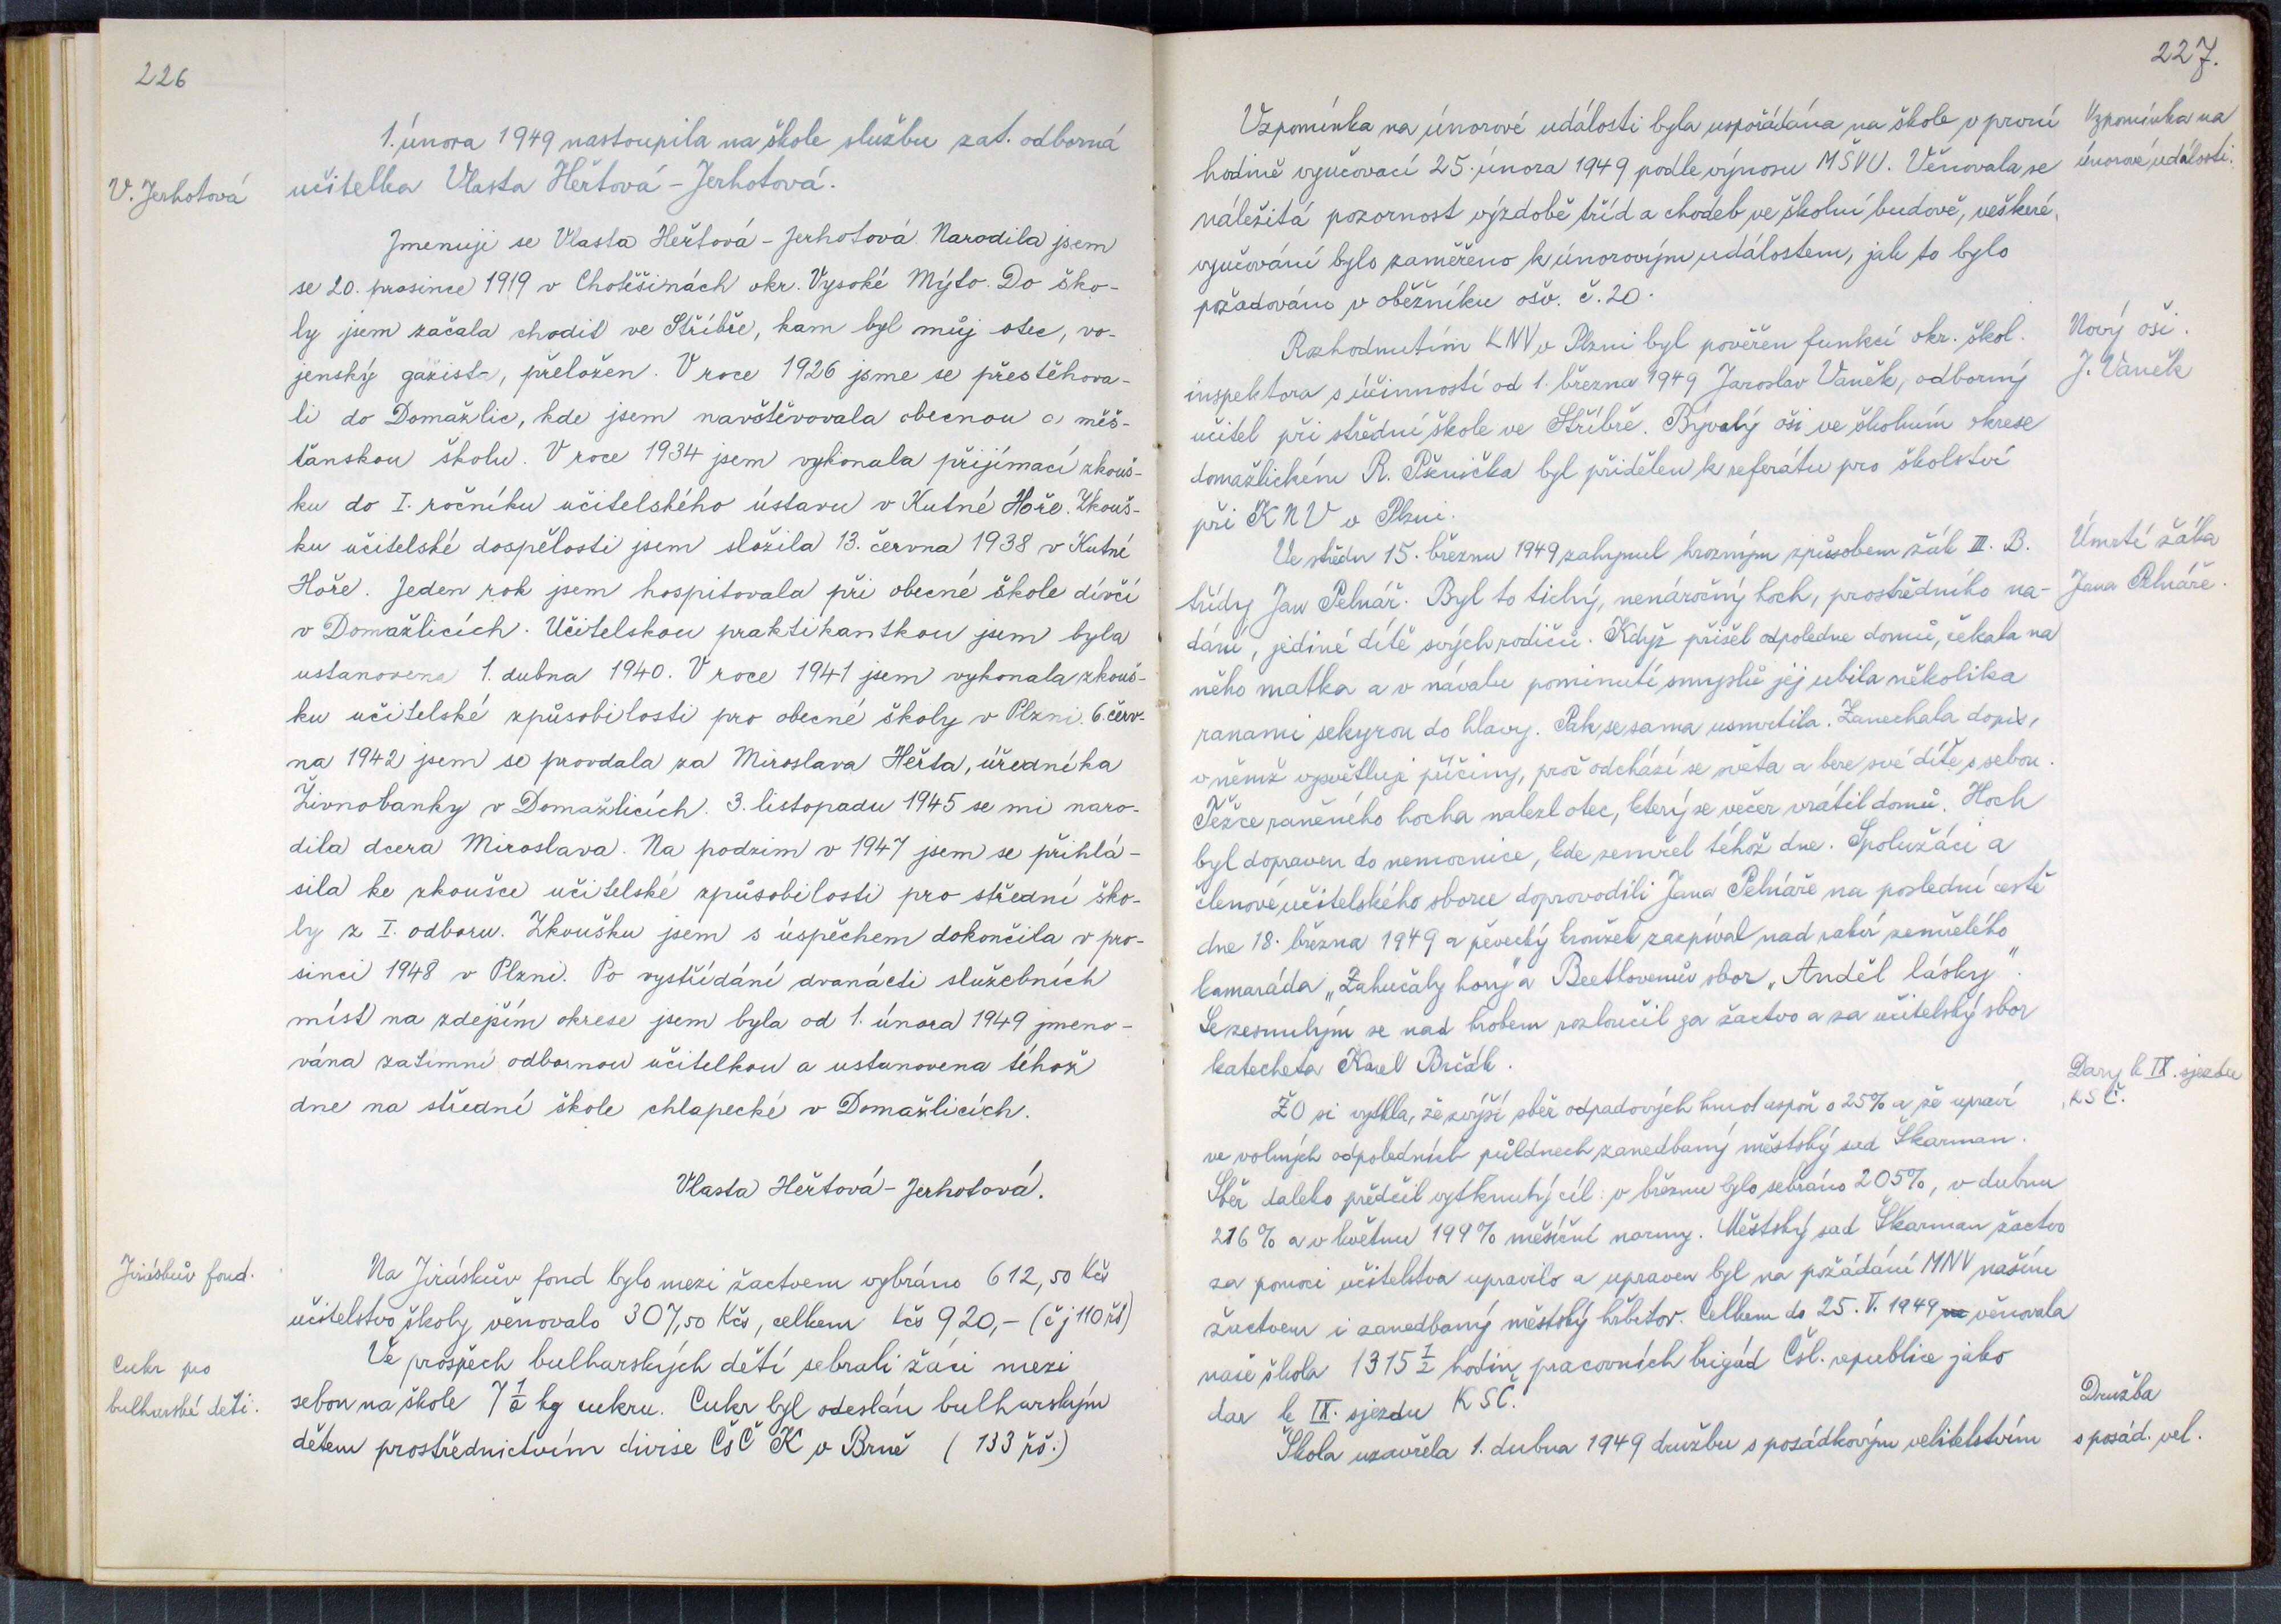 226
1. února 1949 nastoupila na škole službu zat. odborná
V. Jerhotová
učitelka Vlasta Heřtová - Jerhotová.
Jmenuji se Vlasta Heřtová - Jerhotová. Narodila jsem
se 20. prosince 1919 v Chotěšinách okr. Vysoké Mýto. Do ško-
ly jsem začala chodit ve Stříbře, kam byl můj otec, vo-
jenský gážista, přeložen. V roce 1926 jsme se přestěhova-
li do Domažlic, kde jsem navštěvovala obecnou a měš-
ťanskou školu. V roce 1934 jsem vykonala přijímací zkouš-
ku do I. ročníku učitelského ústavu v Kutné Hoře. Zkouš-
ku učitelské dospělosti jsem složila 13. června 1938 v Kutné
Hoře. Jeden rok jsem hospitovala při obecné škole dívčí
v Domažlicích. Učitelskou praktikantkou jsem byla
ustanovena 1. dubna 1940. V roce 1941 jsem vykonala zkouš-
ku učitelské způsobilosti pro obecné školy v Plzni. 6. červ-
na 1942 jsem se provdala za Miroslava Heřta, úředníka
Živnobanky v Domažlicích. 3. listopadu 1945 se mi naro-
dila dcera Miroslava. Na podzim v 1947 jsem se přihlá-
sila ke zkoušce učitelské způsobilosti pro střední ško-
ly z I. odboru. Zkoušku jsem s úspěchem dokončila v pro-
sinci 1948 v Plzni. Po vystřídání dvanácti služebních
míst na zdejším okrese jsem byla od 1. února 1949 jmeno-
vána zatímní odbornou učitelkou a ustanovena téhož
dne na střední škole chlapecké v Domažlicích.
Vlasta Heřtová - Jerhotová.
Jiráskův fond.
Na Jiráskův fond bylo mezi žactvem vybráno 612,50 Kčs
učitelstvo školy věnovalo 307,50 Kčs, celkem Kčs 920,- (čj 110 řš)
Cukr pro
bulharské děti.
Ve prospěch bulharských dětí sebrali žáci mezi
sebou na škole 7 1/2 kg cukru. Cukr byl odeslán bulharským
dětem prostřednictvím divise ČsČK v Brně (133 řš.)
227.
Vzpomínka na únorové události byla uspořádána na škole v první
hodině vyučovací 25. února 1949 podle výnosu MŠVU. Věnovala se
náležitá pozornost výzdobě tříd a chodeb ve školní budově, veškeré
vyučování bylo zaměřeno k únorovým událostem, jak to bylo
požadováno v oběžníku ošv. č. 20.
Vzpomínka na
únorové události.
Rozhodnutím KNV v Plzni byl pověřen funkcí okr. škol.
inspektora s účinností od 1. března 1949 Jaroslav Vaněk, odborný
učitel při střední škole ve Stříbře. Bývalý oši ve školním okrese
domažlickém R. Pšenička byl přidělen k referátu pro školství
při KNV v Plzni.
Nový oši.
J. Vaněk
Ve středu 15. březnu 1949 zahynul hrozným způsobem žák III. B.
třídy Jan Pelnář. Byl to tichý, nenáročný hoch, prostředního na-
dání, jediné dítě svých rodičů. Když přišel odpoledne domů, čekala na
něho matka a v návalu pominutí smyslů jej ubila několika
ranami sekyrou do hlavy. Pak se sama usmrtila. Zanechala dopis,
v němž vysvětluje příčiny, proč odchází se světa a bere své dítě s sebou.
Těžce raněného hocha nalezl otec, který se večer vrátil domů. Hoch
byl dopraven do nemocnice, kde zemřel téhož dne. Spolužáci a
členové učitelského sboru doprovodili Jana Pelnáře na poslední cestě
dne 18. března 1949 a pěvecký kroužek zazpíval nad rakví zemřelého
kamaráda „Zahučaly hory" a Beethovenův sbor „Anděl lásky".
Se zesnulým se nad hrobem rozloučil za žactvo a za učitelský sbor
katecheta Karel Brčák.
Úmrtí žáka
Jana Pelnáře.
ŽO si vytkla, že zvýší sběr odpadových hmot aspoň o 25% a že upraví
ve volných odpoledních půldnech zanedbaný městský sad Škarman.
Sběr daleko předčil vytknutý cíl: v březnu bylo sebráno 205%, v dubnu
216% a v květnu 199% měsíční normy. Městský sad Škarman žactvo
za pomoci učitelstva upravilo a upraven byl na požádání MNV naším
žactvem i zanedbaný městský hřbitov. Celkem do 25. V. 1949 věnovala
naše škola 1315 1/2 hodin pracovních brigád Čsl. republice jako
dar k IX. sjezdu KSČ.
Dary k IX. sjezdu
KSČ.
Škola uzavřela 1. dubna 1949 družbu s posádkovým velitelstvím
Družba
s posád. vel.